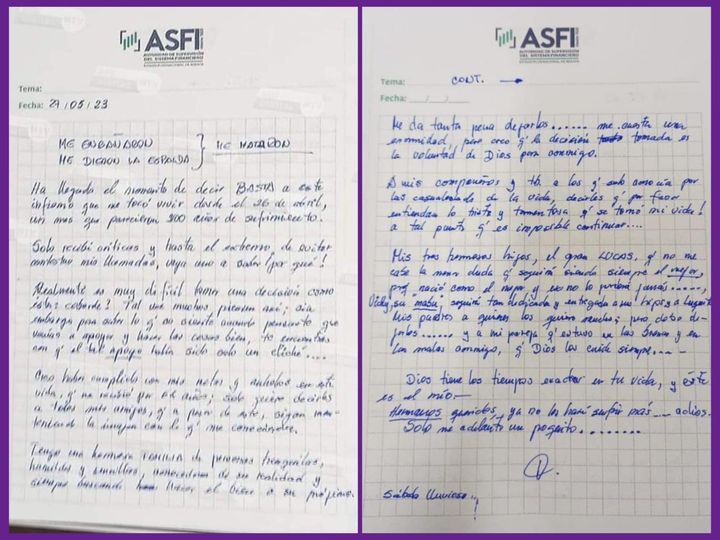 ASFI
AUTORIDAD DE SUPERVISIÓN
DEL SISTEMA FINANCIERO
ESTADO PLURINACIONAL DE BOLIVIA
Tema:
Fecha: 27/05/23
ME ENGAÑARON
ME DIERON LA ESPALDA } ME MATARON
Ha llegado el momento de decir BASTA a este
infierno que me tocó vivir desde el 26 de abril,
un mes que parecieron 200 años de sufrimiento.
Solo recibí críticas y hasta el extremo de evitar
contestar mis llamadas, vaya uno a saber ¡por qué!
Realmente es muy difícil tomar una decisión como
ésta: cobarde! Tal vez muchos piensen así; sin
embargo para saber lo q' no siento cuando pensaste que
varias a apoyar y hacer las cosas bien, te encuentras
con q' el tal apoyo había sido solo un cliché....
Creo haber cumplido con mis metas y anhelos en esta
vida, q' no resistió por años; solo quiero decirles
a todos mis amigos, q' a pesar de esto, sigan
la imagen con la q' me conocieron.
Tengo una hermosa familia de personas tranquilas,
humildes y sencillas, conocedoras de su realidad y
siempre buscando hacer el bien a su prójimo.
ASFI
AUTORIDAD DE SUPERVISIÓN
DEL SISTEMA FINANCIERO
ESTADO PLURINACIONAL DE BOLIVIA
Tema: CONT. →
Fecha: __/__/__
Me da tanta pena dejarlos...... me cuesta una
enormidad, pero creo q' la decisión tomada es
la voluntad de Dios para conmigo.
A mis compañeros y tb. a los q' solo conocía por
las casualidades de la vida, decirles q' por favor
entiendan lo triste y tormentosa q' se tornó mi vida!
a tal punto q' es imposible continuar....
Mis tres hermosos hijos, el gran LUCAS, q' no me
cabe la menor duda q' seguirá siendo siempre el mejor,
pq' nació como el mejor y eso no lo perderá jamás.....,
Vicky, su mami seguirá tan dedicada y entregada a mis hijos y
Mis padres a quienes los quiero mucho; pero debo de-
jarlos....... y a mi pareja q' estuvo en las buenas y en
las malas conmigo, q' Dios los cuide siempre... -
Dios tiene los tiempos exactos en tu vida, y éste
es el mío-
Hermanos queridos, ya no los haré sufrir más... adios.
Solo me adelanto un poquito........
Sábado lluvioso..!